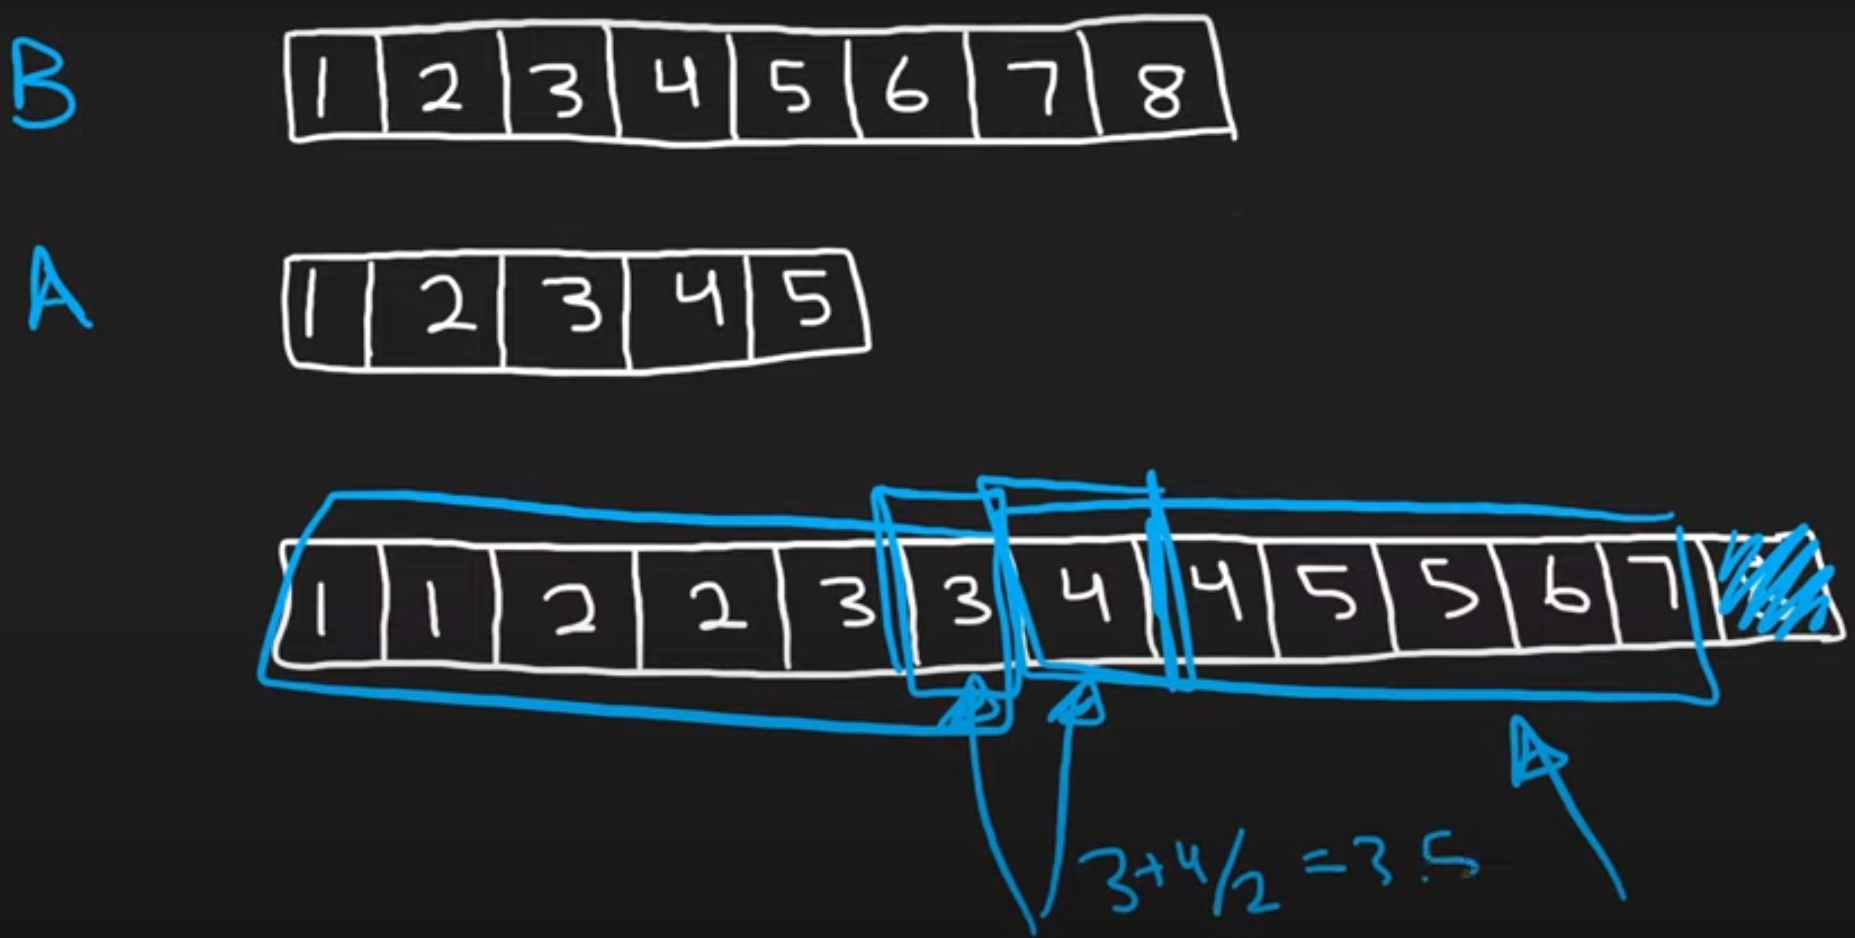 B 1 2 3 4 5 6 7 8
A 1 2 3 4 5
1 1 2 2 3 3 4 4 5 5 6 7
3+4/2 = 3.5